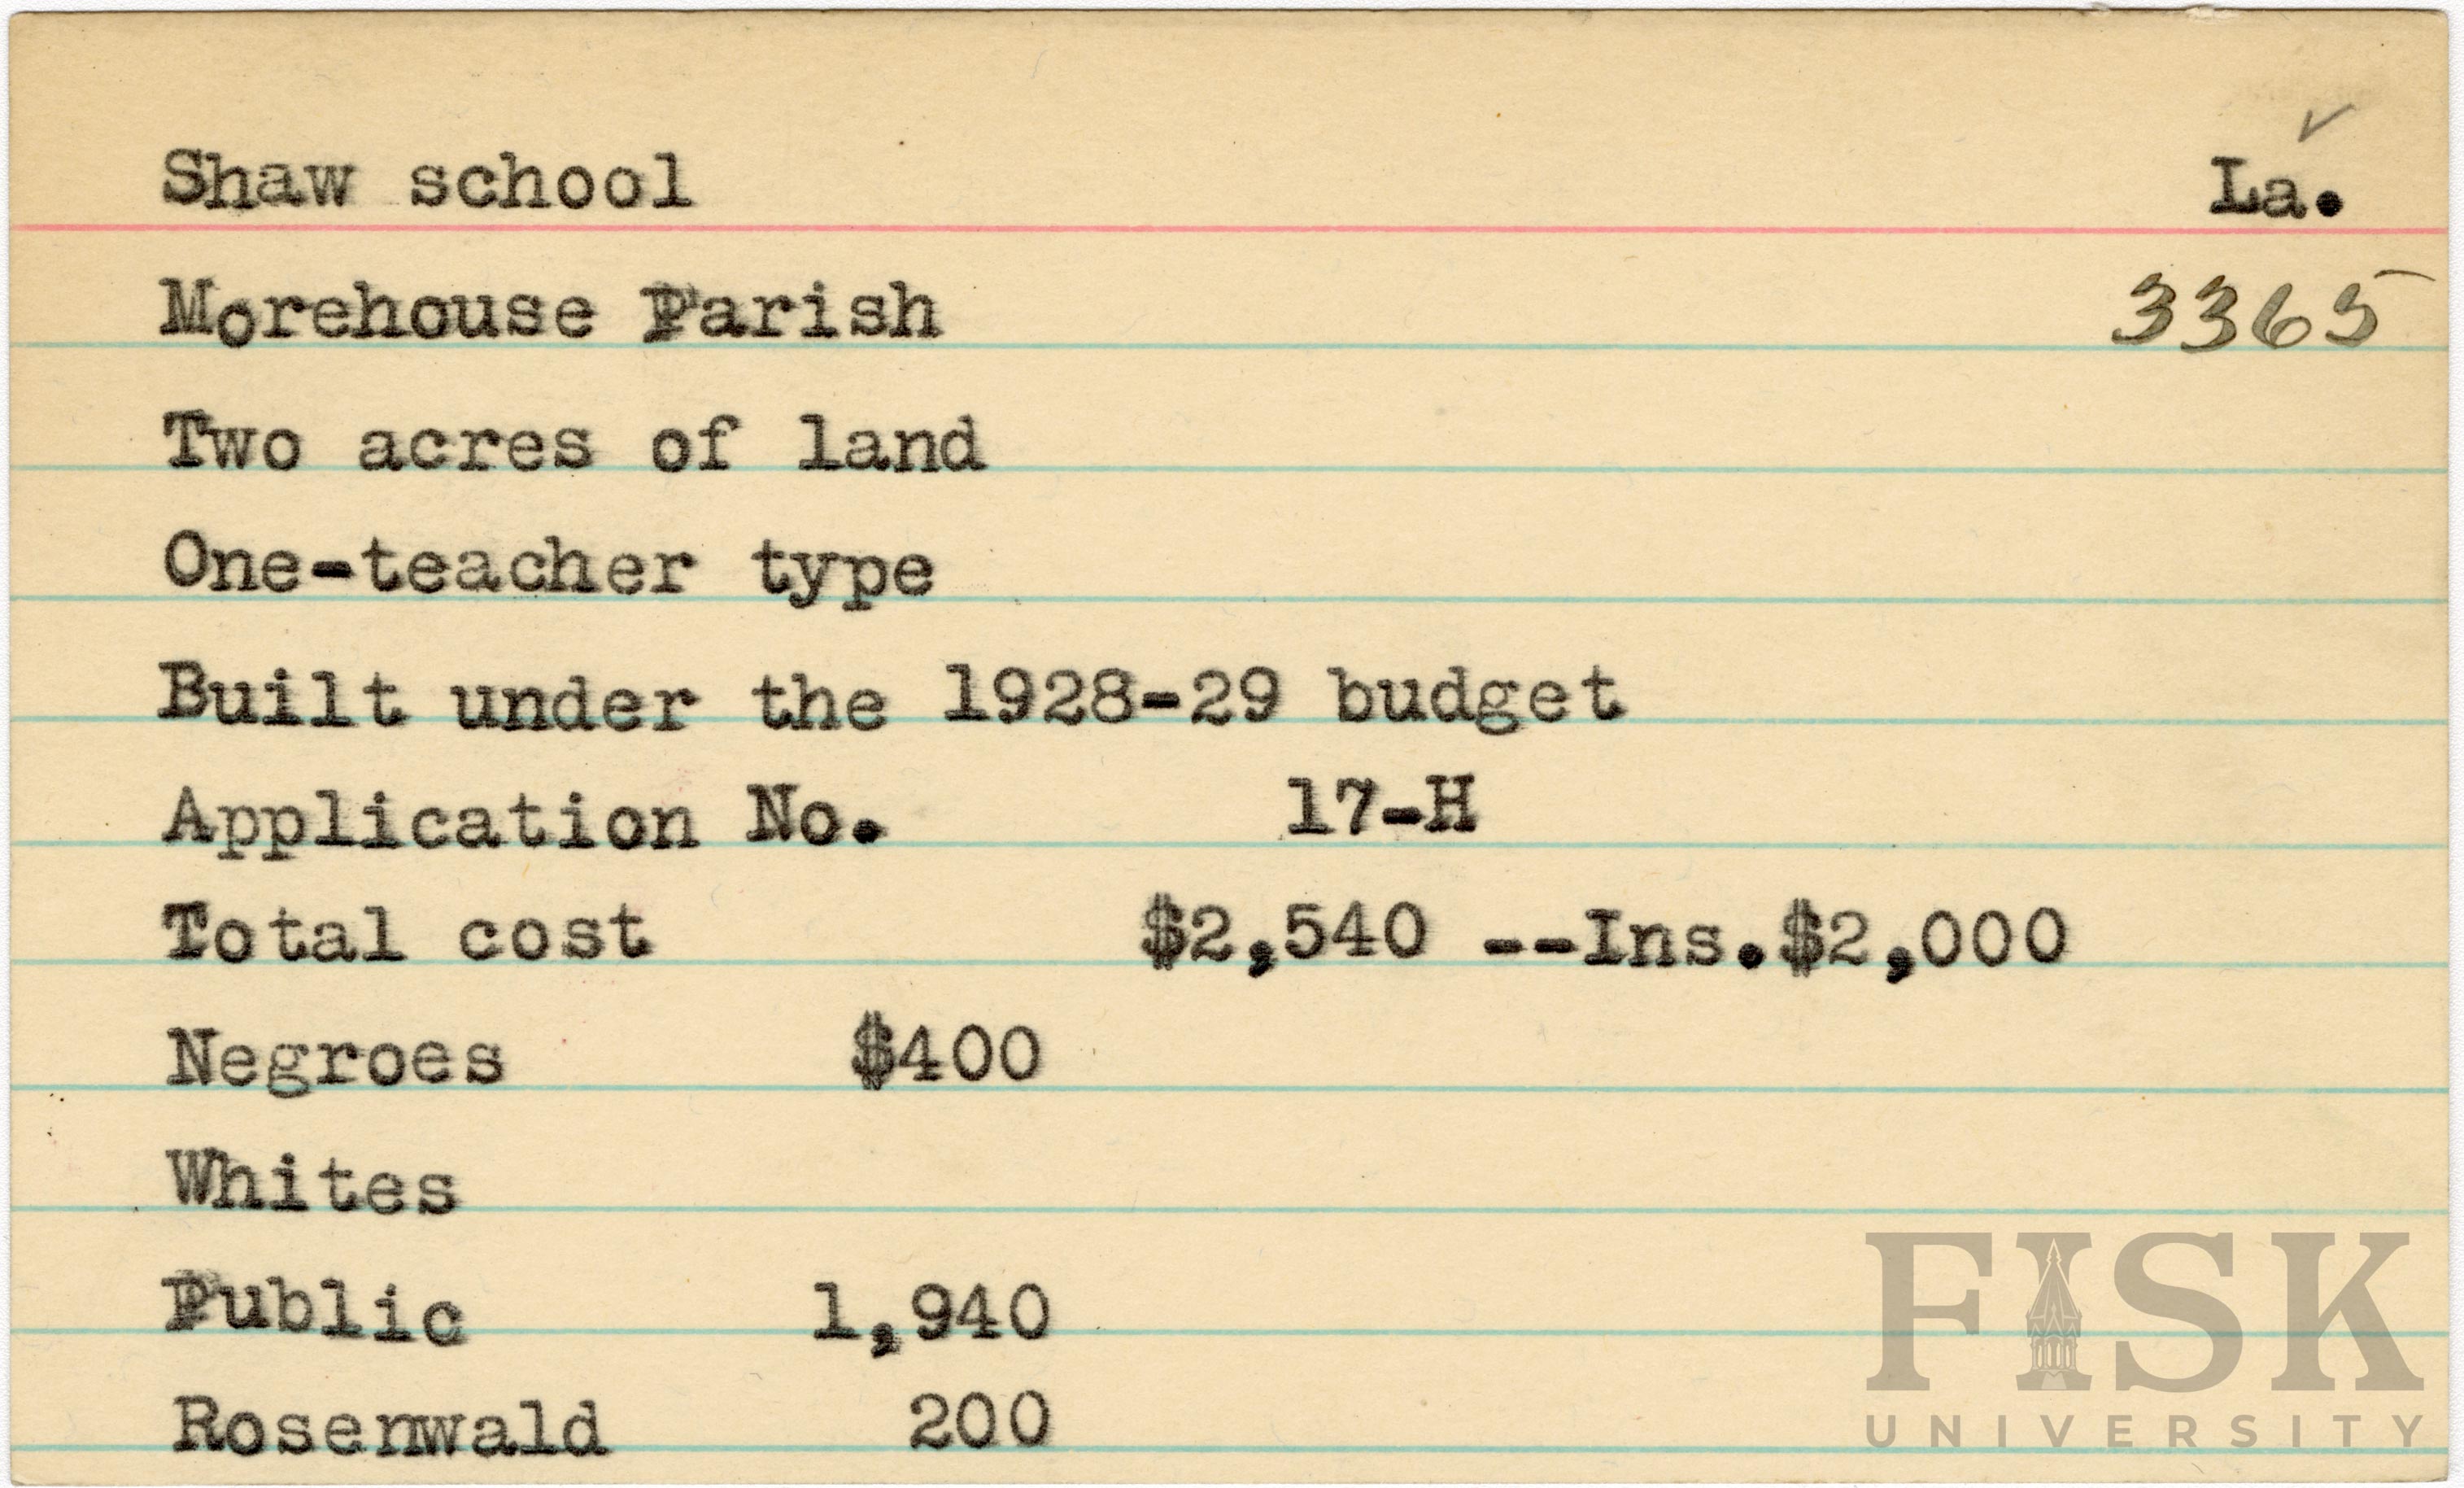 ✓
Shaw school La.
Morehouse Parish 3365
Two acres of land
One-teacher type
Built under the 1928-29 budget
Application No. 17-H
Total cost $2,540 --Ins.$2,000
Negroes $400
Whites
Public 1,940
Rosenwald 200
FISK
UNIVERSITY